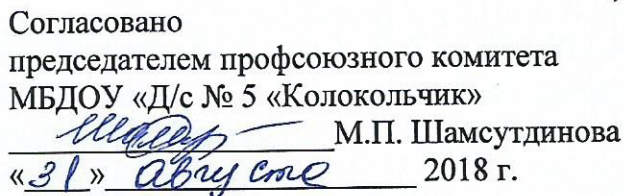 Согласовано
председателем профсоюзного комитета
МБДОУ «Д/с № 5 «Колокольчик»
М.П. Шамсутдинова
«31» августа 2018 г.